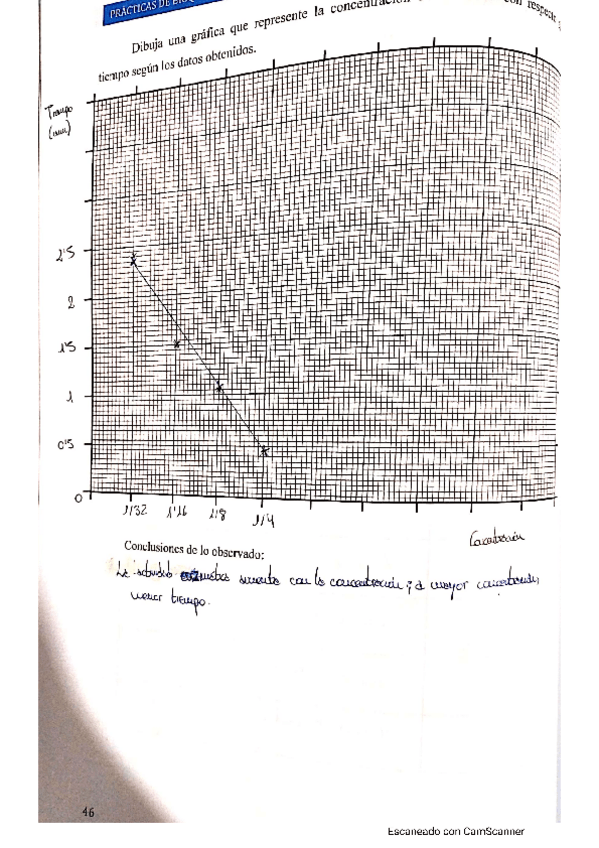 PRÁCTICAS DE BIOQ
Dibuja una gráfica que represente la concentración con respecto
tiempo según los datos obtenidos.
Tiempo
(min)
2'5
2
1'5
1
0'5
0
1/32 1/16 1/8 1/4
Concentración
Conclusiones de lo observado:
La aumenta con la concentración; a mayor concentración,
menor tiempo.
46
Escaneado con CamScanner